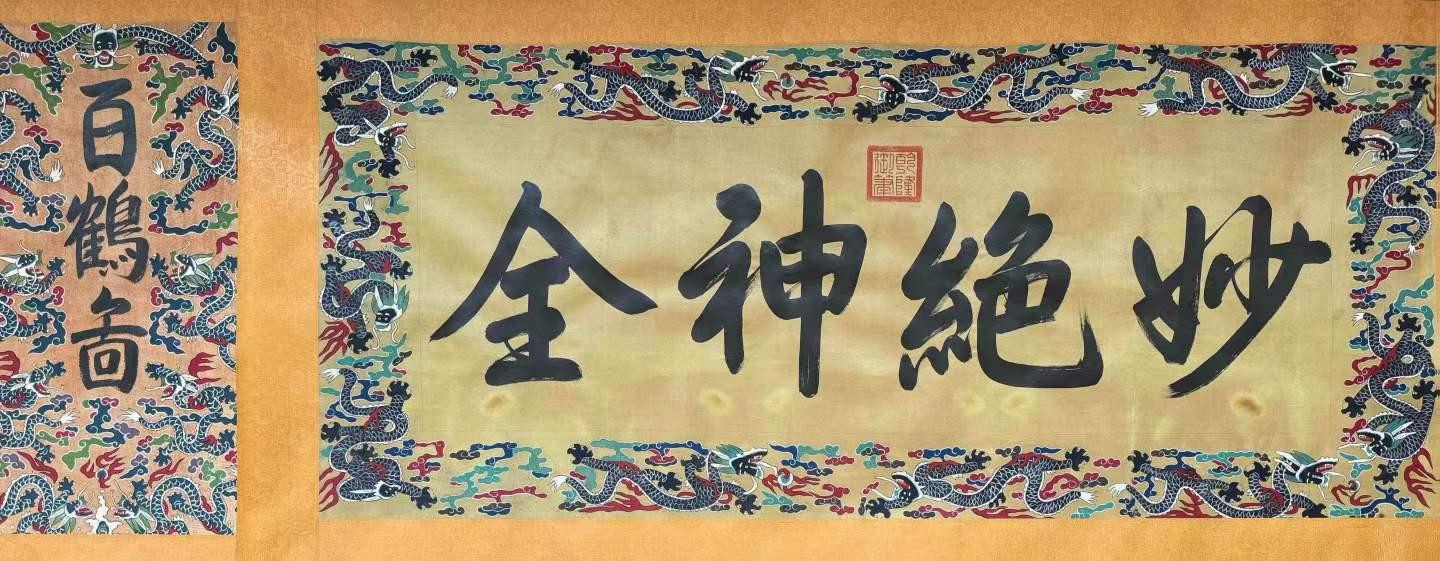 妙絶神全
乾隆御筆
百鶴啚